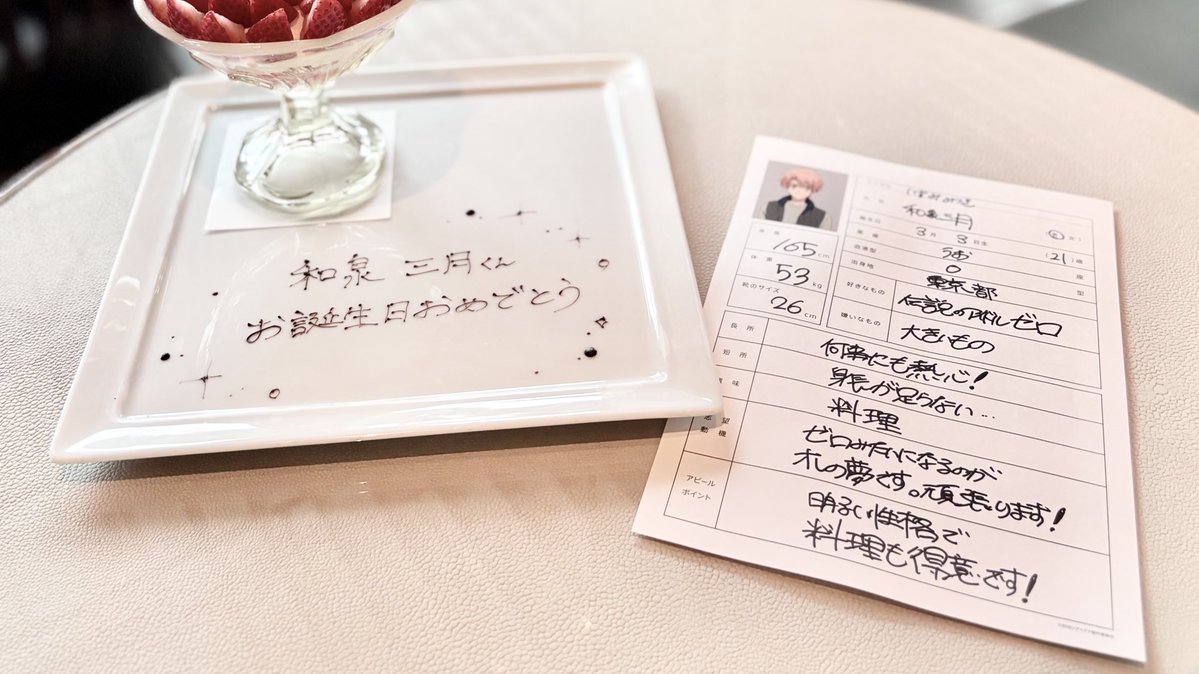 和泉 三月くん
お誕生日おめでとう
いずみ みつき
和泉三月
3月 3日生 (21)歳
うお 座
O 型
東京都
身長 165 cm
体重 53 kg
靴のサイズ 26 cm
血液型
出身地
好きなもの 伝説のアイドルゼロ
嫌いなもの 大きいもの
長所 何事にも熱心!
短所 身長が足りない…
趣味 料理
志望動機 ゼロみたいになるのが
オレの夢です。頑張ります!
アピールポイント 明るい性格で
料理も得意です!